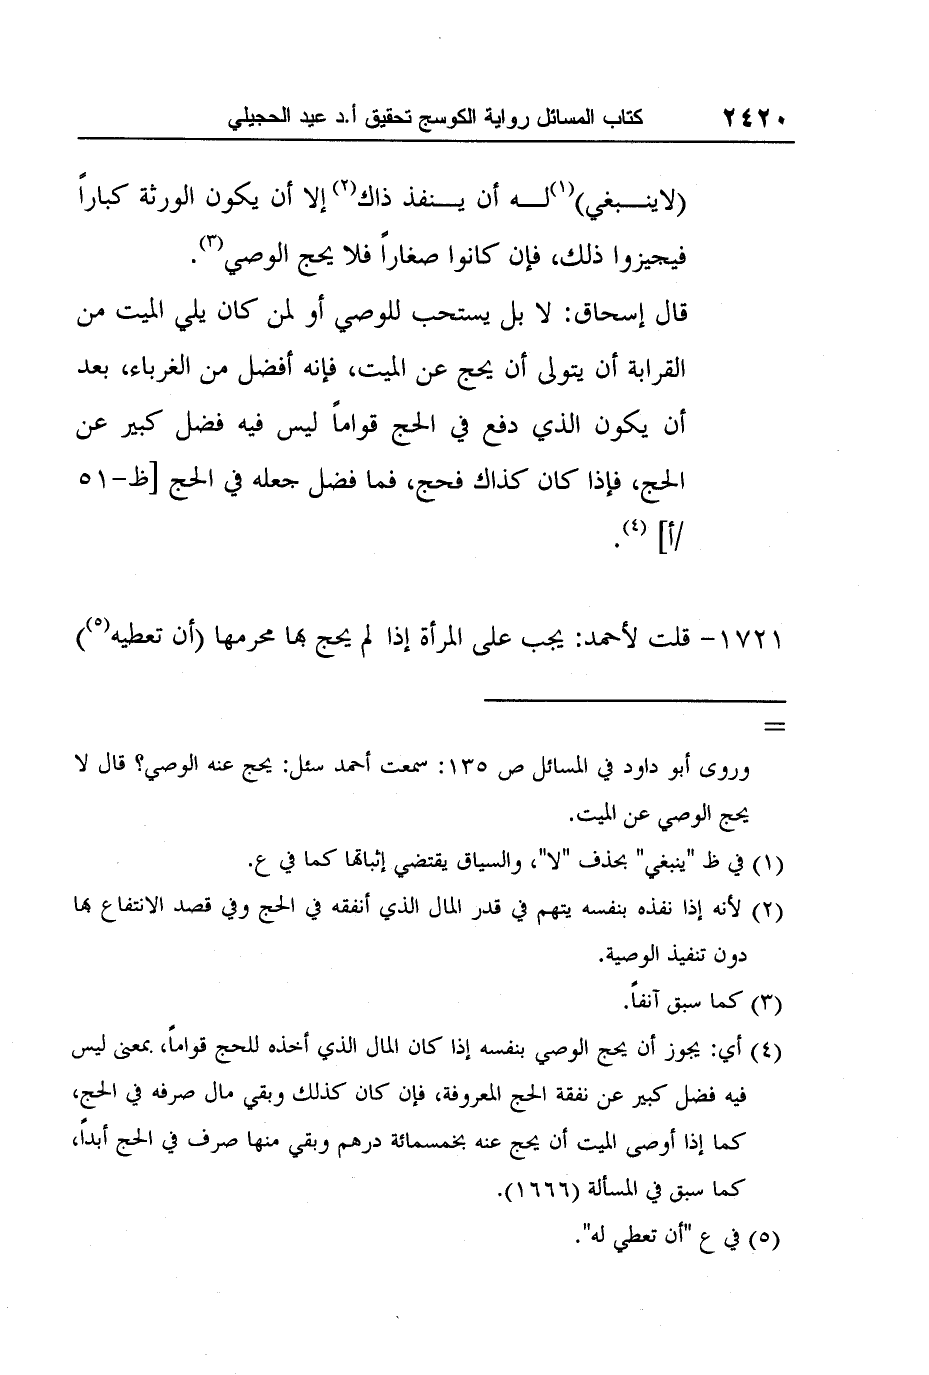 ٢٤٢٠ كتاب المسائل رواية الكوسج تحقيق أ.د عيد الحجيلي
(لاينبغي)(١) له أن ينفذ ذاك(٢) إلا أن يكون الورثة كباراً
فيجيزوا ذلك، فإن كانوا صغاراً فلا يحج الوصي(٣).
قال إسحاق: لا بل يستحب للوصي أو لمن كان يلي الميت من
القرابة أن يتولى أن يحج عن الميت، فإنه أفضل من الغرباء، بعد
أن يكون الذي دفع في الحج قواماً ليس فيه فضل كبير عن
الحج، فإذا كان كذاك فحج، فما فضل جعله في الحج [ظ-٥١
/أ] (٤).
١٧٢١- قلت لأحمد: يجب على المرأة إذا لم يحج بها محرمها (أن تعطيه(٥))
=
وروى أبو داود في المسائل ص ١٣٥: سمعت أحمد سئل: يحج عنه الوصي؟ قال لا
يحج الوصي عن الميت.
(١) في ظ "ينبغي" بحذف "لا"، والسياق يقتضي إثباتها كما في ع.
(٢) لأنه إذا نفذه بنفسه يتهم في قدر المال الذي أنفقه في الحج وفي قصد الانتفاع بها
دون تنفيذ الوصية.
(٣) كما سبق آنفاً.
(٤) أي: يجوز أن يحج الوصي بنفسه إذا كان المال الذي أخذه للحج قواماً، بمعنى ليس
فيه فضل كبير عن نفقة الحج المعروفة، فإن كان كذلك وبقي مال صرفه في الحج،
كما إذا أوصى الميت أن يحج عنه بخمسمائة درهم وبقي منها صرف في الحج أبداً،
كما سبق في المسألة (١٦٦٦).
(٥) في ع "أن تعطي له".